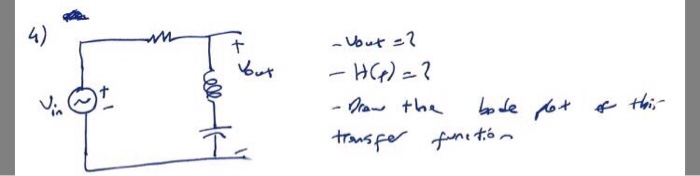 4)
+
Vout
Vin
+
-
-
- Vout = ?
- H(f) = ?
- Draw the bode plot of this
transfer function